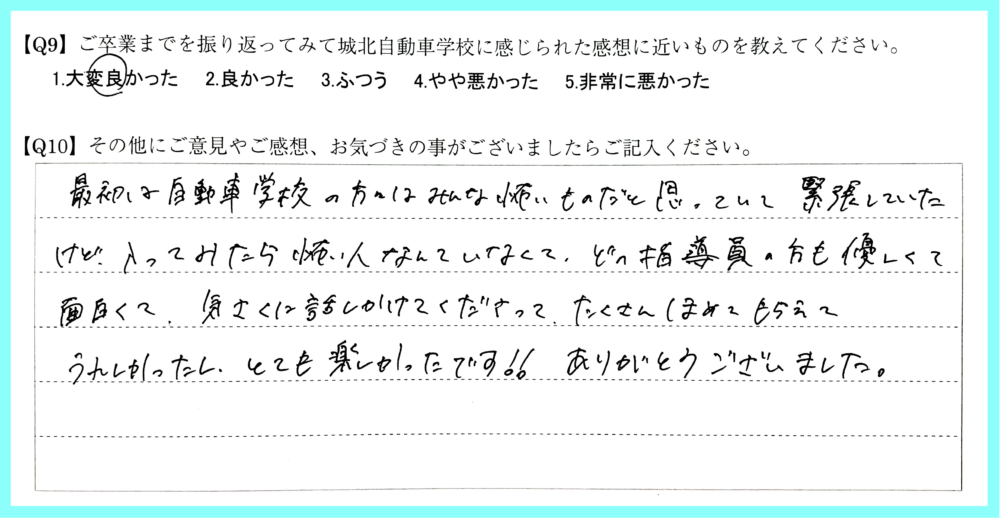 【Q9】ご卒業までを振り返ってみて城北自動車学校に感じられた感想に近いものを教えてください。
1.大変良かった 2.良かった 3.ふつう 4.やや悪かった 5.非常に悪かった
【Q10】その他にご意見やご感想、お気づきの事がございましたらご記入ください。
最初は自動車学校の方々はみんな怖いものだと思っていて緊張していた
けど、入ってみたら怖い人なんていなくて、どの指導員の方も優しくて
面白くて、気さくに話しかけてくださって、たくさんほめてもらえて
うれしかったし、とても楽しかったです!! ありがとうございました。